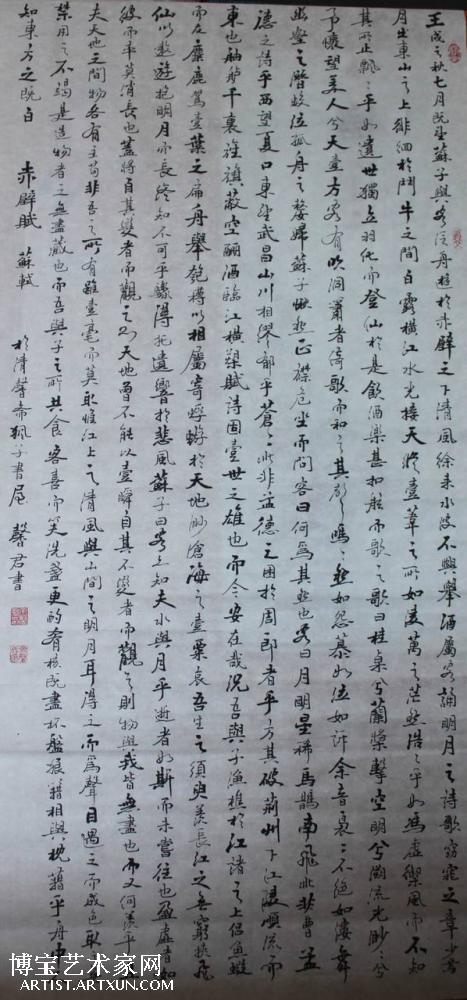 壬戌之秋七月既望蘇子與客泛舟遊於赤壁之下清風徐來水波不興舉酒屬客誦明月之詩歌窈窕之章少焉
月出東山之上徘徊於鬥牛之間白露橫江水光接天縱壹葦之所如凌萬之茫然浩浩乎如馮虛禦風而不知
其所止飄飄乎如遺世獨立羽化而登仙於是飲酒樂甚扣舷而歌之歌曰桂棹兮蘭槳擊空明兮溯流光渺渺兮
予懷望美人兮天壹方客有吹洞簫者倚歌而和之其聲嗚嗚然如怨慕如泣如訴余音裊裊不絕如縷舞
幽壑之潛蛟泣孤舟之嫠婦蘇子愀然正襟危坐而問客曰何為其然也客曰月明星稀烏鵲南飛此非曹孟
德之詩乎西望夏口東望武昌山川相繆郁乎蒼蒼此非孟德之困於周郎者乎方其破荊州下江陵順流而
東也舳艫千裏旌旗蔽空釃酒臨江橫槊賦詩固壹世之雄也而今安在哉況吾與子漁樵於江渚之上侶魚蝦
而友麋鹿駕壹葉之扁舟舉匏樽以相屬寄蜉蝣於天地渺滄海之壹粟哀吾生之須臾羨長江之無窮挾飛
仙以遨遊抱明月而長終知不可乎驟得托遺響於悲風蘇子曰客亦知夫水與月乎逝者如斯而未嘗往也盈虛者如
彼而卒莫消長也蓋將自其變者而觀之則天地曾不能以壹瞬自其不變者而觀之則物與我皆無盡也而又何羨乎且
夫天地之間物各有主茍非吾之所有雖壹毫而莫取惟江上之清風與山間之明月耳得之而為聲目遇之而成色取之
禁用之不竭是造物者之無盡藏也而吾與子之所共食客喜而笑洗盞更酌肴核既盡杯盤狼籍相與枕藉乎舟中
知東方之既白 赤壁賦 蘇軾 於清馨齋珮子書屋 馨君書
博宝艺术家网
ARTIST.ARTXUN.COM